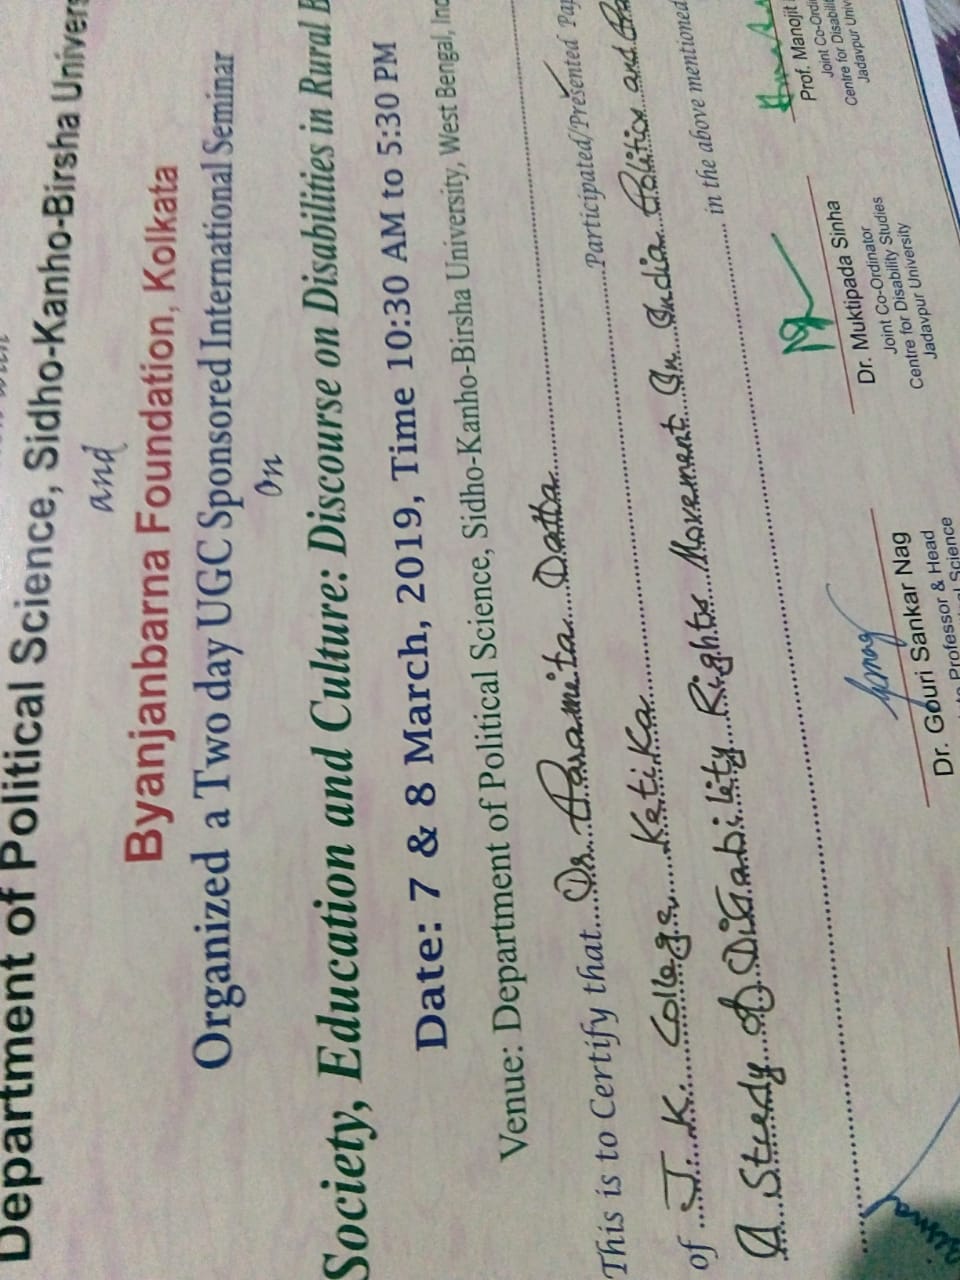 Department of Political Science, Sidho-Kanho-Birsha Univers
and
Byanjanbarna Foundation, Kolkata
Organized a Two day UGC Sponsored International Seminar
on
Society, Education and Culture: Discourse on Disabilities in Rural B
Date: 7 & 8 March, 2019, Time 10:30 AM to 5:30 PM
Venue: Department of Political Science, Sidho-Kanho-Birsha University, West Bengal, Ind
This is to Certify that Dr. Paramita Datta
of J. K. College Ketika Participated/Presented Pap
A Study of Disability Rights Movement In India Politics and
in the above mentioned
Dr. Gouri Sankar Nag
Professor & Head
Science
Dr. Muktipada Sinha
Joint Co-Ordinator
Centre for Disability Studies
Jadavpur University
Prof. Manojit
Joint Co-Ordi
Centre for Disabilit
Jadavpur Univ